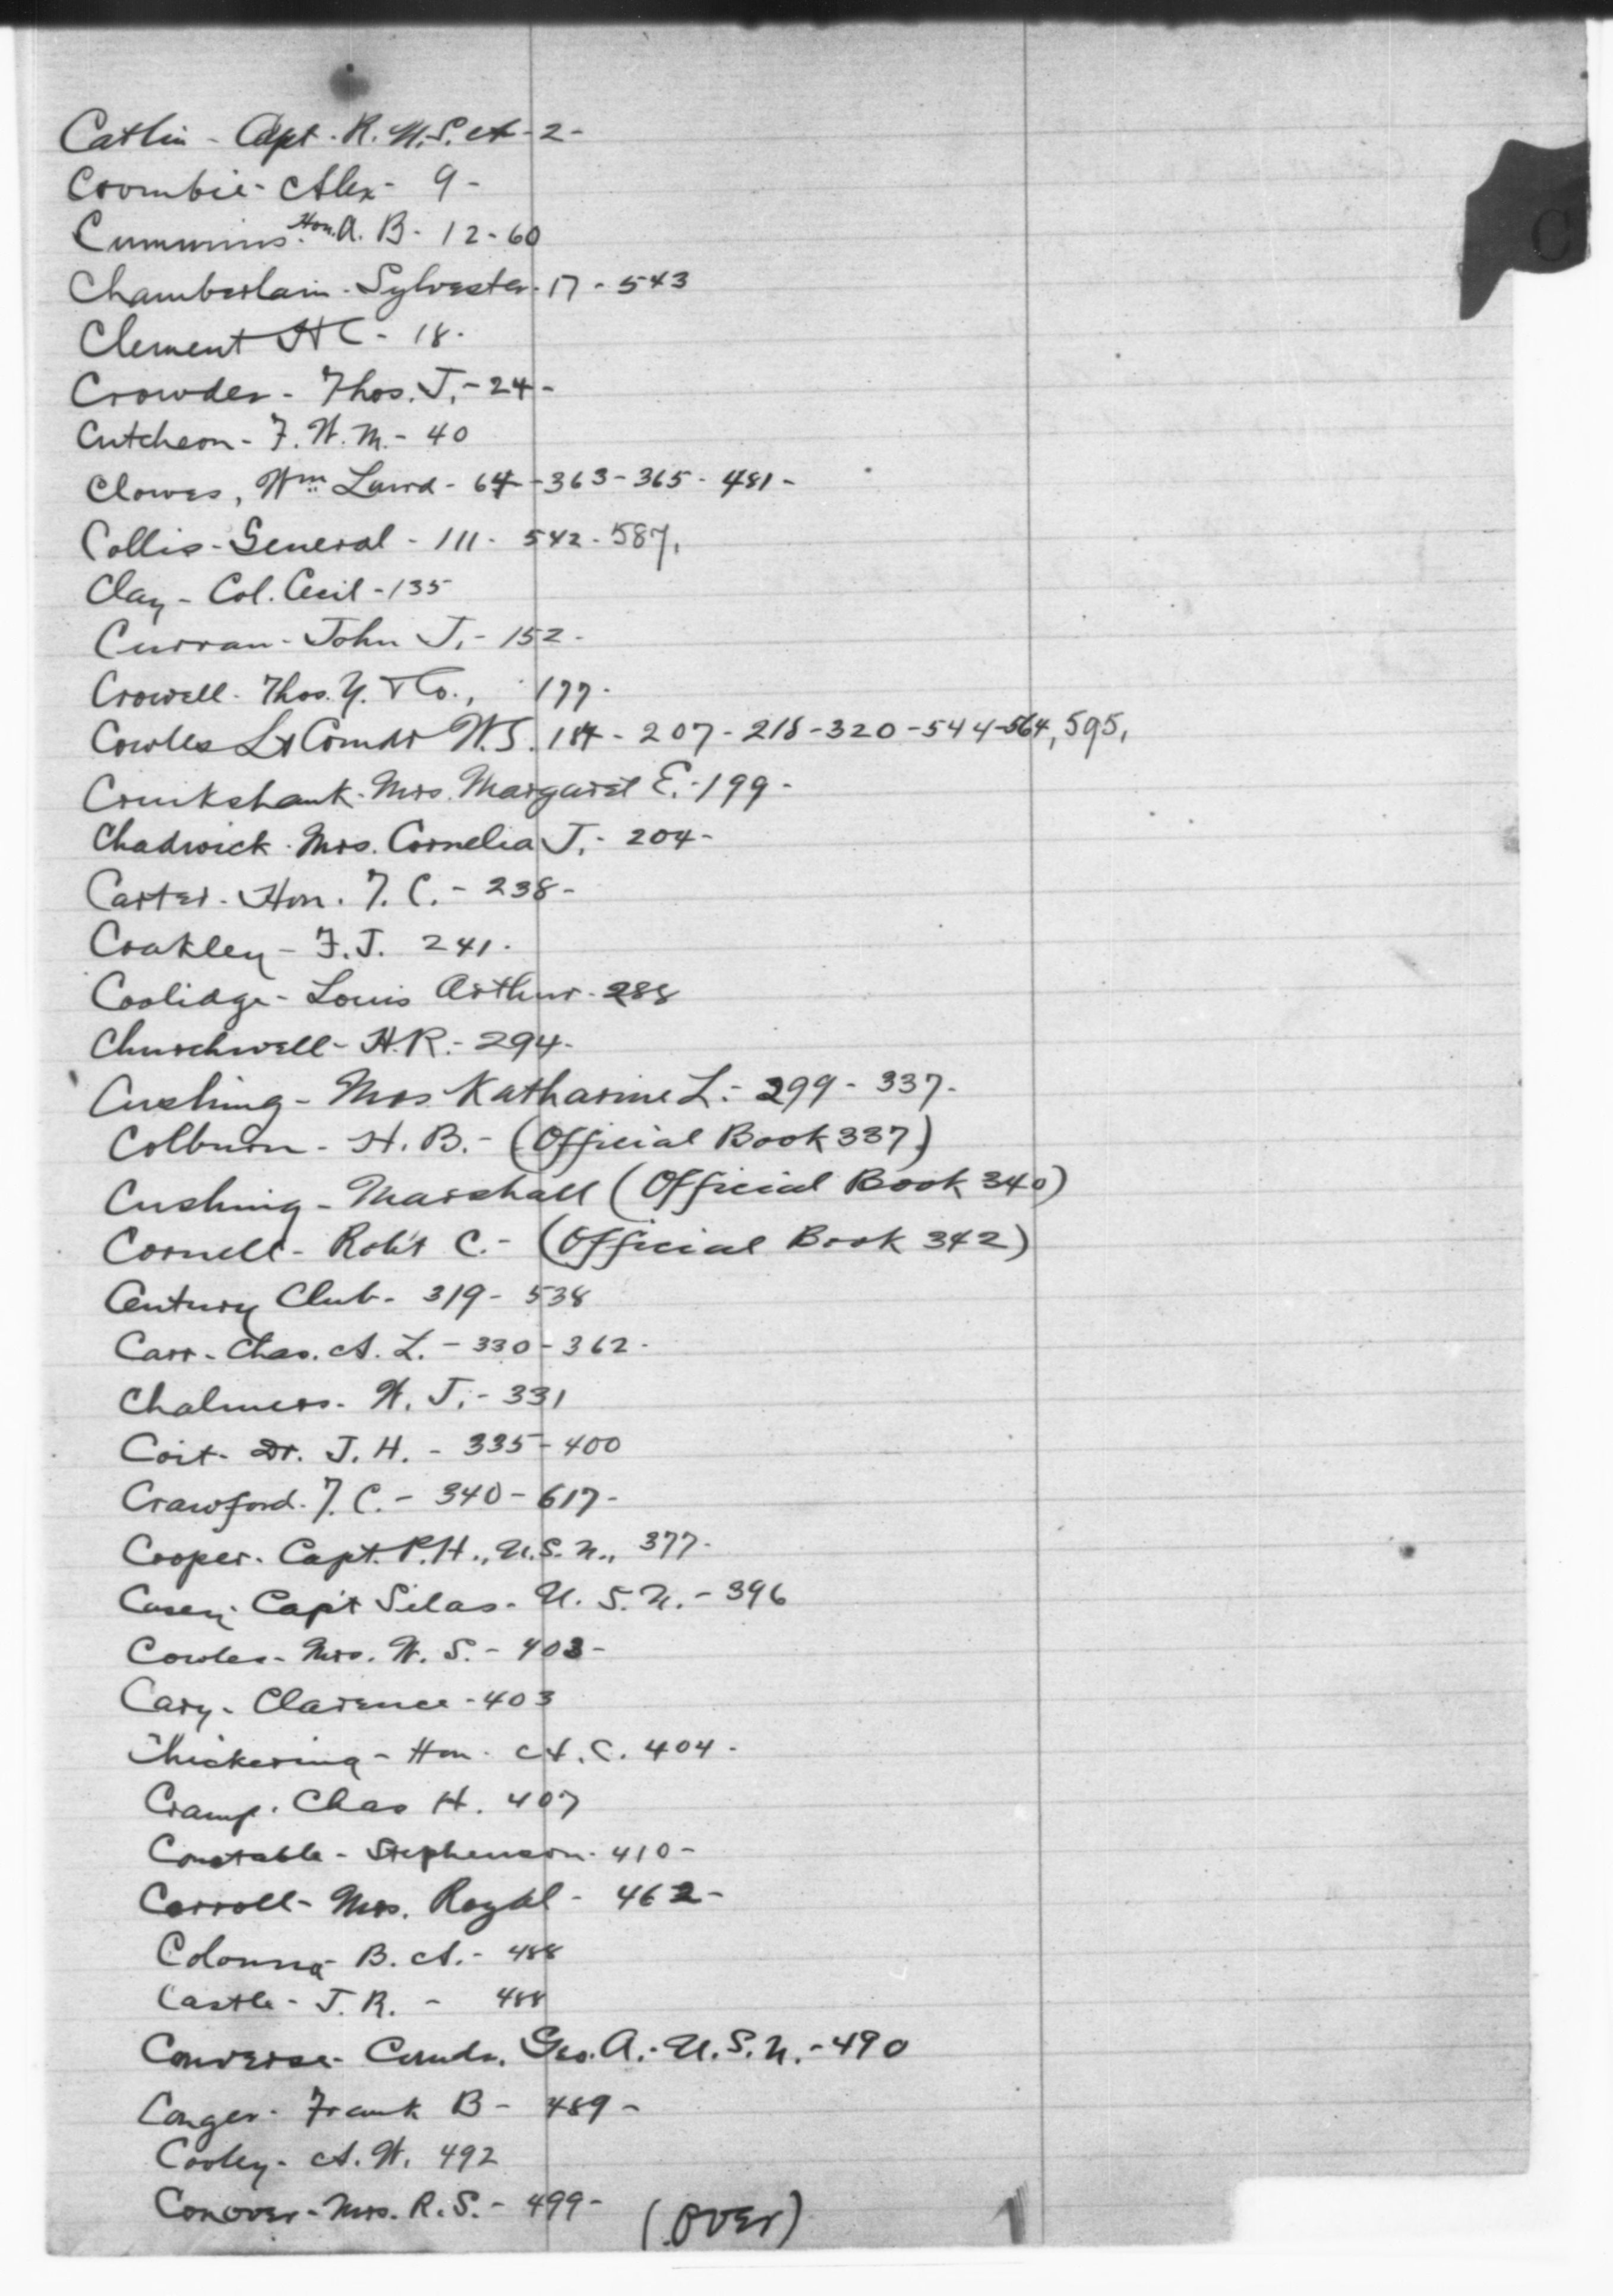 Catlin - Capt. R. U.S.A - 2 -
Crombie - Alex - 9 -
Cummins. Hon. A. B - 12 - 60
Chamberlain - Sylvester - 17 - 543
Clement H C - 18.
Crowder - Thos. J. - 24 -
Cutcheon - F. W. M. - 40
Clowes, Wm Laird - 64 - 363 - 365 - 481 -
Collis - General - 111 - 542 - 587.
Clay - Col. Cecil - 135
Curran - John J. - 152 -
Crowell - Thos. Y. & Co., 177 -
Cowles Lt Comdr W.S. 184 - 207 - 218 - 320 - 544 - 564, 595,
Cruikshank - Mrs. Margaret E. - 199 -
Chadwick - Mrs. Cornelia J. - 204 -
Carter - Hon. T. C. - 238 -
Coakley - F. J. 241 -
Coolidge - Louis Arthur - 288
Churchwell - H. R. - 294 -
Cushing - Mrs Katharine L. - 299 - 337 -
Colburn - H. B. - (Official Book 337)
Cushing - Marshall (Official Book 340)
Cornell - Rob't C. - (Official Book 342)
Century Club - 319 - 538
Carr - Chas. A. L. - 330 - 362 -
Chalmers - W. J. - 331
Coit - Dr. J. H. - 335 - 400
Crawford - T. C. - 340 - 617 -
Cooper - Capt. P. H., U.S.N., 377 -
Casey - Cap't Silas - U. S. N. - 396
Cowles - Mrs. W. S. - 403 -
Cary - Clarence - 403
Chickering - Hon. A. C. 404 -
Cramp - Chas H. 407
Constable - Stephenson - 410 -
Carroll - Mrs. Royal - 462 -
Colonna - B. A. - 488
Castle - J. R. - 488
Converse - Comdr. Geo. A. - U.S.N. - 490
Conger - Frank B - 489 -
Cooley - A. W. 492
Conover - Mrs. R. S. - 499 - (over)
C